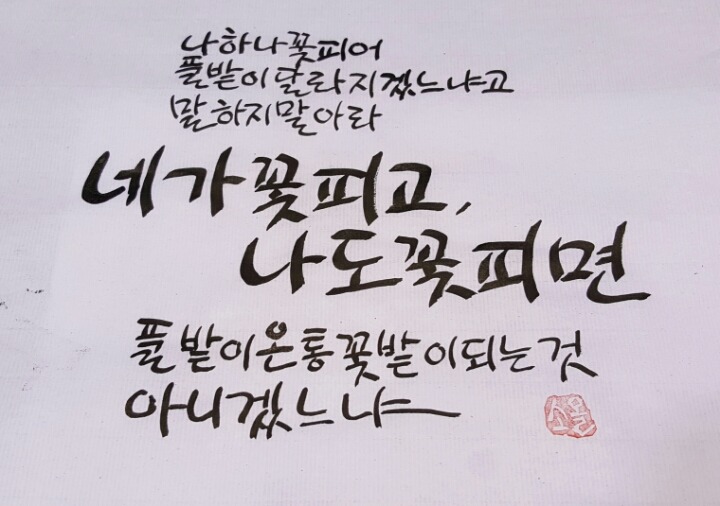 나하나꽃피어
풀밭이달라지겠느냐고
말하지말아라
네가꽃피고,
나도꽃피면
풀밭이온통꽃밭이되는것
아니겠느냐